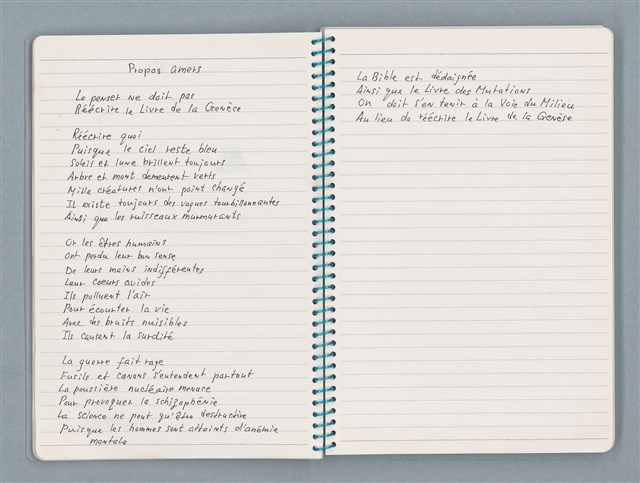 Propos amers
Le penser ne doit pas
Réécrire le Livre de la Genèce
Réécrire quoi
Puisque le ciel reste bleu
Soleil et lune brillent toujours
Arbre et mont demeurent verts
Mille créatures n'ont point changé
Il existe toujours des vagues tourbillonnantes
Ainsi que les ruisseaux murmurants
Or les êtres humains
Ont perdu leur bon sense
De leurs mains indifférentes
Leur coeurs avides
Ils polluent l'air
Pour écourter la vie
Avec des bruits nuisibles
Ils causent la surdité
La guerre fait rage
Fusils et canons s'entendent partout
La poussière nucléaire menace
Pour provoquer la schizophénie
La science ne peut qu'être destructive
Puisque les hommes sont atteints d'anémie
mentale
La Bible est dédaignée
Ainsi que le Livre des Mutations
On doit s'en tenir à la Voie du Milieu
Au lieu de réécrire le Livre de la Genèse